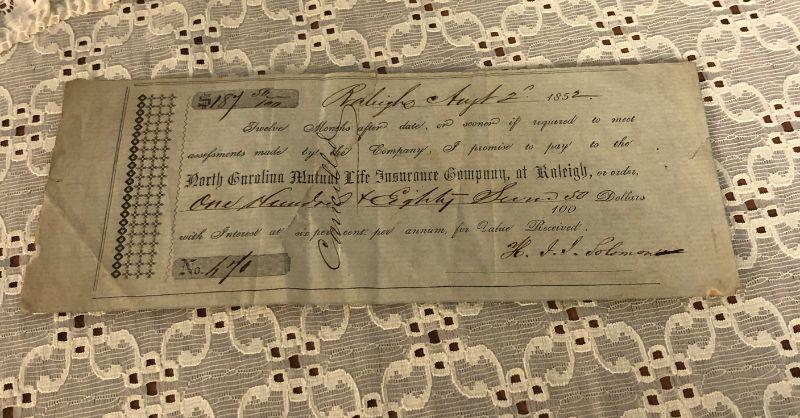 $187 50/100 Raleigh Augt 2d 1852
Twelve Months after date, or sooner if required to meet
assessments made by the Company, I promise to pay to the
North Carolina Mutual Life Insurance Company, at Raleigh, or order,
One Hundred & Eighty Seven 50/100 Dollars
with Interest at six per cent. per annum, for Value Received.
No. H. J. J. Solomon